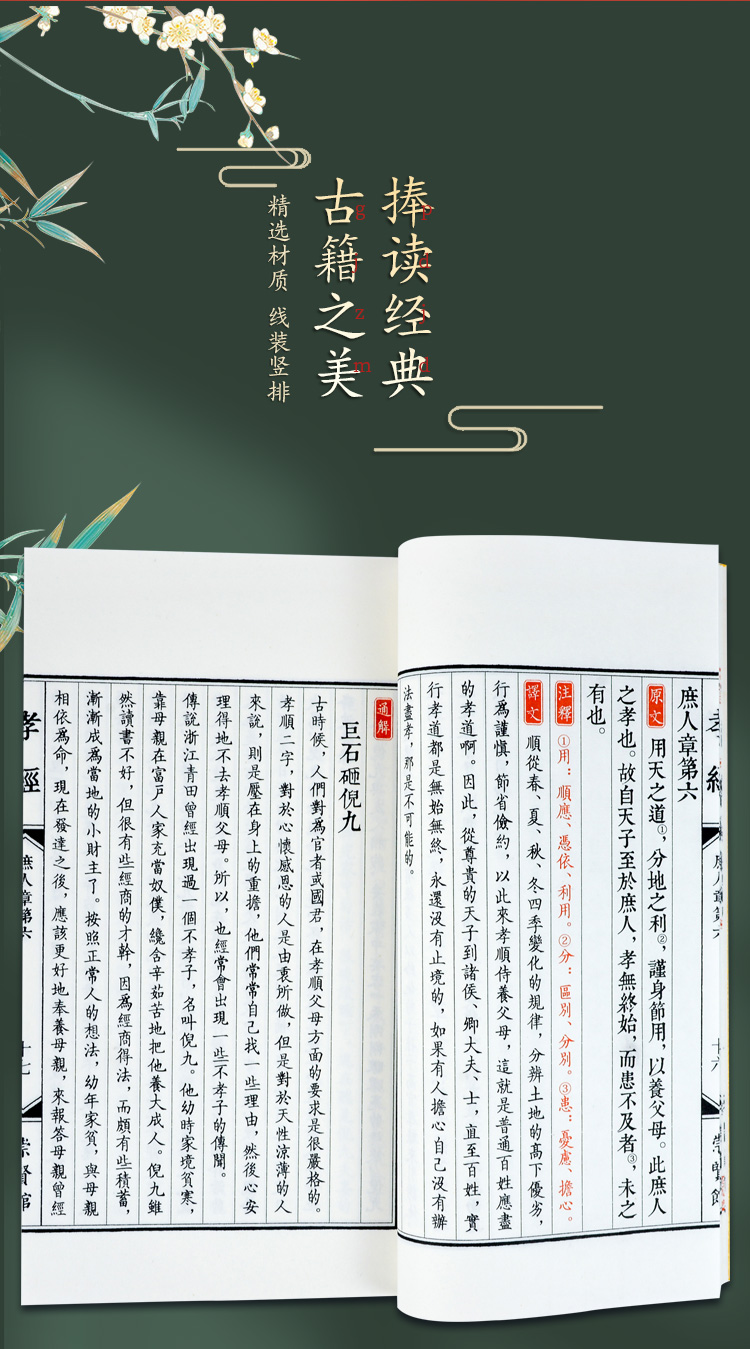 捧读经典
pdjd
古籍之美
gjzm
精选材质 线装竖排
孝經
庶人章第六
十六
崇賢館
庶人章第六
原文 用天之道①，分地之利②，謹身節用，以養父母。此庶人
之孝也。故自天子至於庶人，孝無終始，而患不及者③，未之
有也。
注釋 ①用：順應、憑依、利用。②分：區別、分別。③患：憂慮、擔心。
譯文 順從春、夏、秋、冬四季變化的規律，分辨土地的高下優劣，
行爲謹慎，節省儉約，以此來孝順侍養父母，這就是普通百姓應盡
的孝道啊。因此，從尊貴的天子到諸侯、卿大夫、士，直至百姓，實
行孝道都是無始無終，永還沒有止境的，如果有人擔心自己沒有辦
法盡孝，那是不可能的。
通解
巨石砸倪九
古時候，人們對爲官者或國君，在孝順父母方面的要求是很嚴格的。
孝順二字，對於心懷感恩的人是由衷所做，但是對於天性涼薄的人
來説，則是壓在身上的重擔，他們常常自己找一些理由，然後心安
理得地不去孝順父母。所以，也經常會出現一些不孝子的傳聞。
傳說浙江青田曾經出現過一個不孝子，名叫倪九。他幼時家境貧寒，
靠母親在富戶人家充當奴僕，纔含辛茹苦地把他養大成人。倪九雖
然讀書不好，但很有些經商的才幹，因爲經商得法，而頗有些積蓄，
漸漸成爲當地的小財主了。按照正常人的想法，幼年家貧，與母親
相依爲命，現在發達之後，應該更好地奉養母親，來報答母親曾經
孝經
庶人章第六
十七
崇賢館